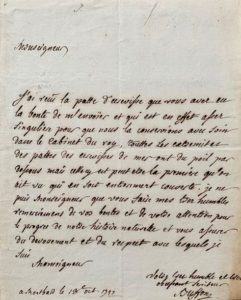 Monseigneur
J'ai reçu la patte d'ecrevisse que vous avez eu
la bonté de m'envoier et qui est en effet assez
singuliere pour que nous la conservions avec soin
dans le cabinet du roy, toutes les extremités
des pattes des ecrevisses de mer ont du poil par
dessous mais celle cy est peut etre la premiere qu'on
ait vu qui en soit entierement couverte, je ne
puis Monseigneur que vous faire mes tres humbles
remerciemens de vos bontés et de votre attention pour
le progrès de notre histoire naturelle et vous assurer
du devouement et du respect avec lesquels je
suis
Monseigneur
Votre tres humble et tres
obeissant serviteur
Buffon
a Montbard le 18 oct